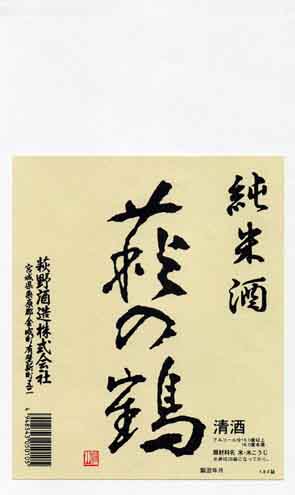 純米酒
萩の鶴
清酒
アルコール分15.0度以上
16.0度未満
原材料名 米・米こうじ
製造年月
萩野酒造株式会社
宮城県栗原郡金成町有壁新町